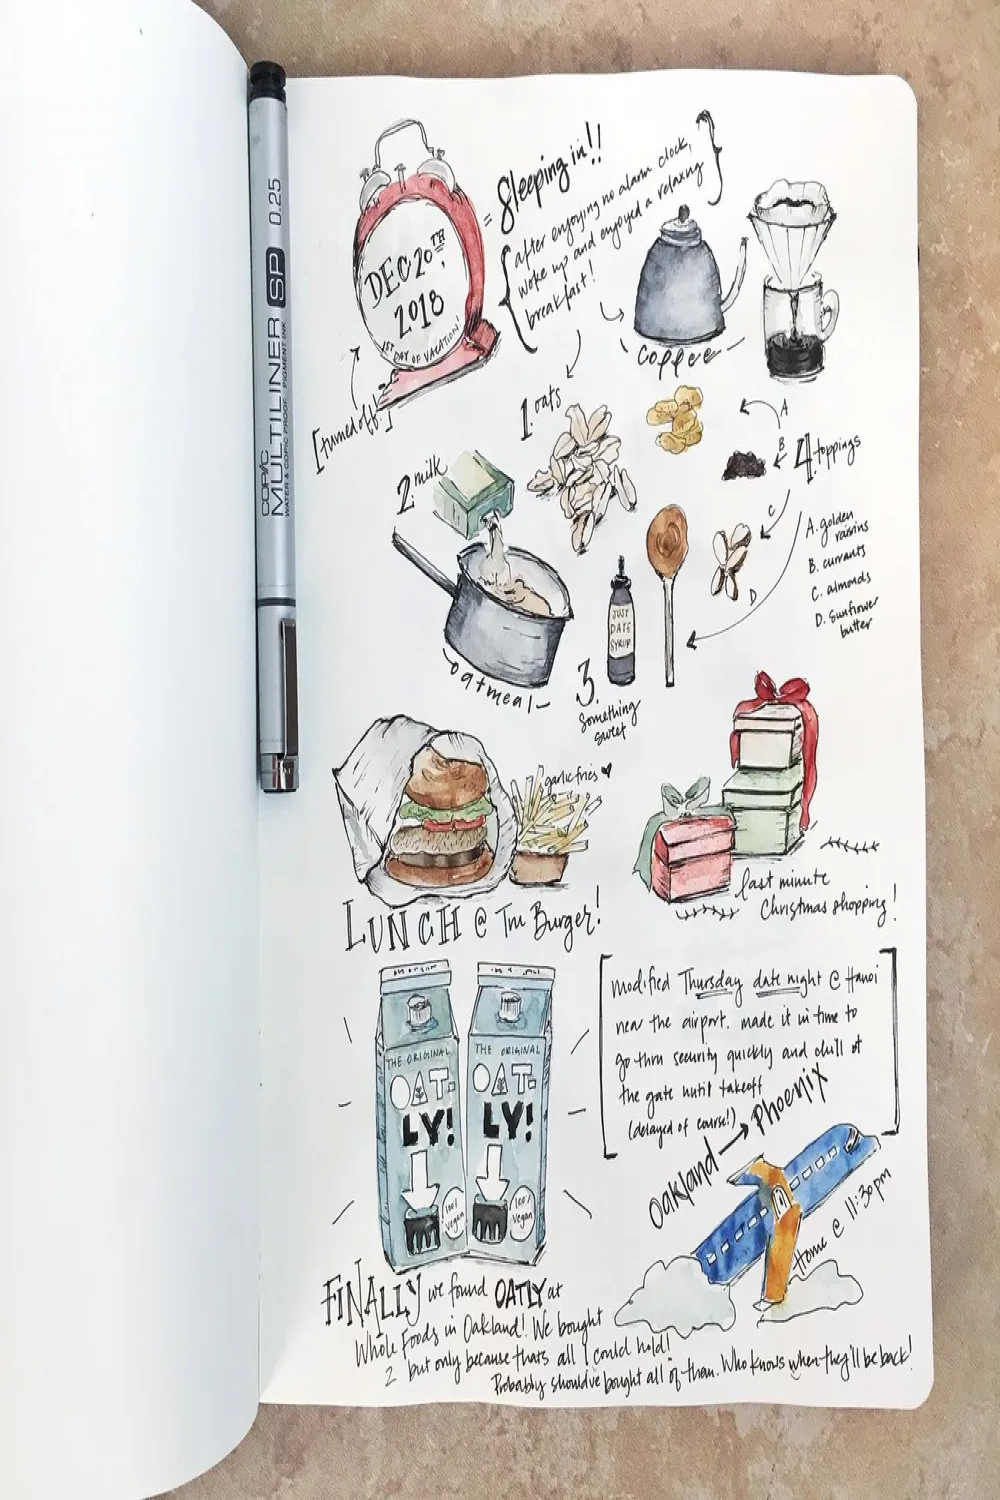 COPIC
MULTILINER SP 0.25
WATER & COPIC PROOF PIGMENT INK
DEC 20TH,
2018
1ST DAY OF VACATION!
[turned off!]
= Sleeping in!!
{after enjoying no alarm clock,
woke up and enjoyed a relaxing
breakfast!}
- Coffee -
1. oats
2. milk
- oatmeal -
JUST
DATE
SYRUP
3.
Something
sweet
4. toppings
A
B
C
D
A. golden
raisins
B. currants
C. almonds
D. sunflower
butter
garlic fries ♥
LUNCH @ Burger!
last minute
Christmas shopping!
THE ORIGINAL
OAT-
LY!
100%
Vegan
THE ORIGINAL
OAT-
LY!
100%
Vegan
FINALLY we found OATLY at
Whole Foods in Oakland! We bought
2 but only because thats all I could hold!
Probably should've bought all of them. Who knows when they'll be back!
[modified Thursday date night @ Hanoi
near the airport. made it in time to
go thru security quickly and chill at
the gate until takeoff
(delayed of course!)]
Oakland → Phoenix
Home @ 11:30pm